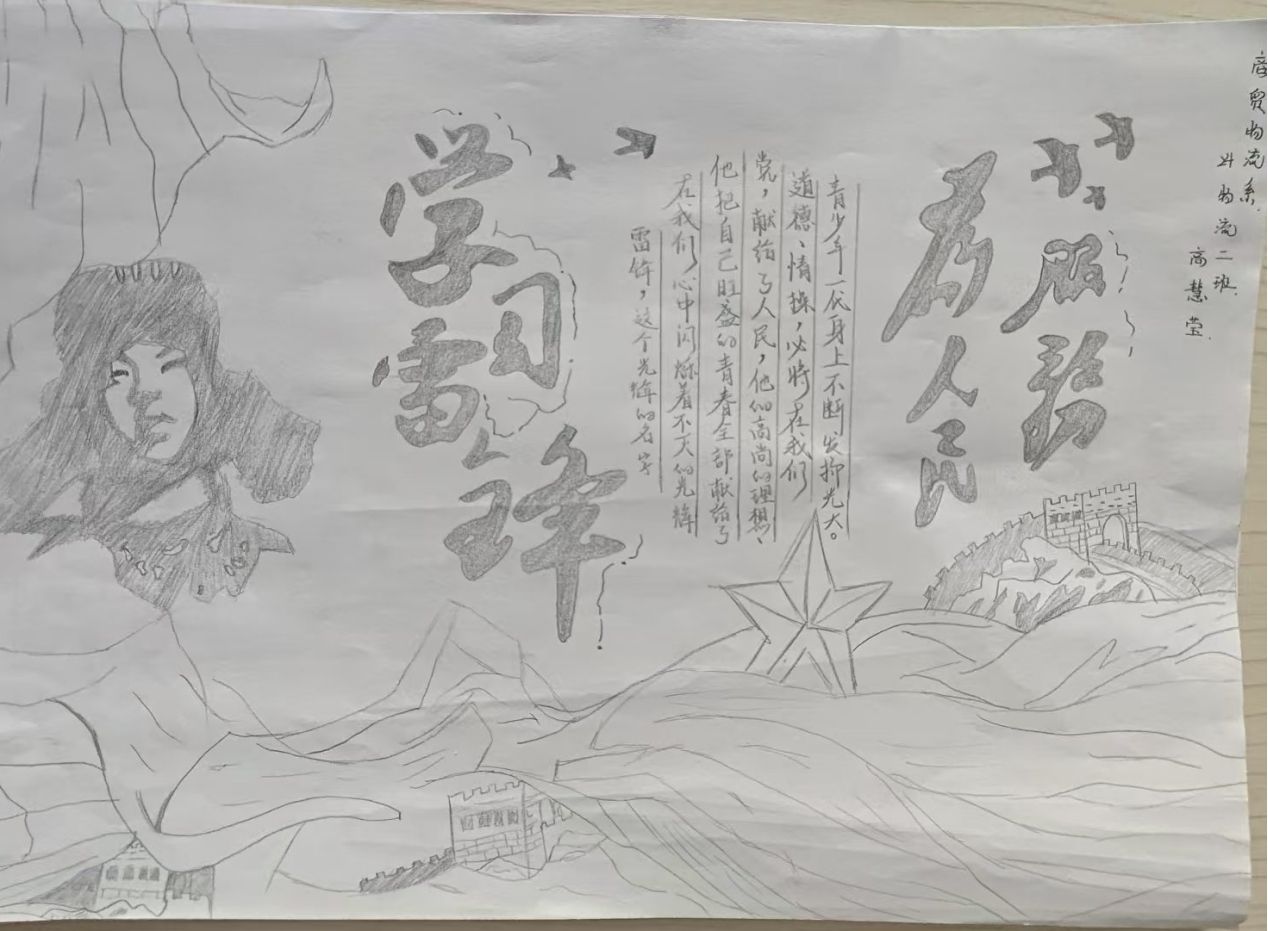 学习
雷锋
雷锋，这个光辉的名字
在我们心中闪烁着不灭的光辉
他把自己旺盛的青春全部献给了
党，献给了人民，他的高尚的理想、
道德、情操，必将在我们
青少年一代身上不断发扬光大。
為人民
服務
商贸物流系.
物流二班.
高慧莹.